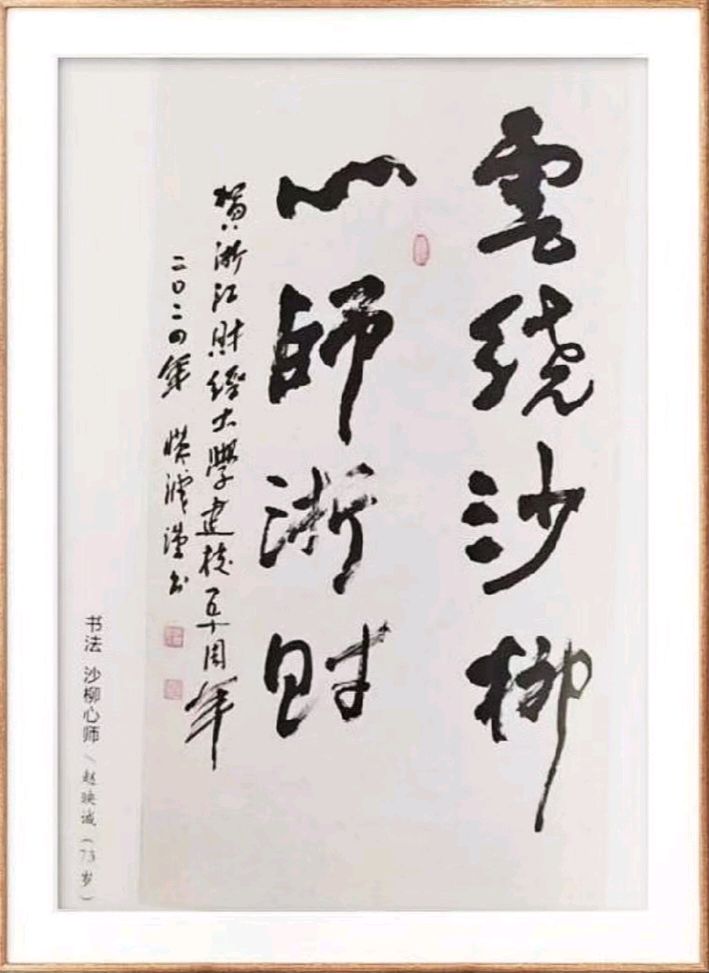 雲繞沙柳
心師浙財
賀浙江財經大學建校五十周年
二〇二四年 映誠 書
书法 沙柳心师/赵映诚(73岁)